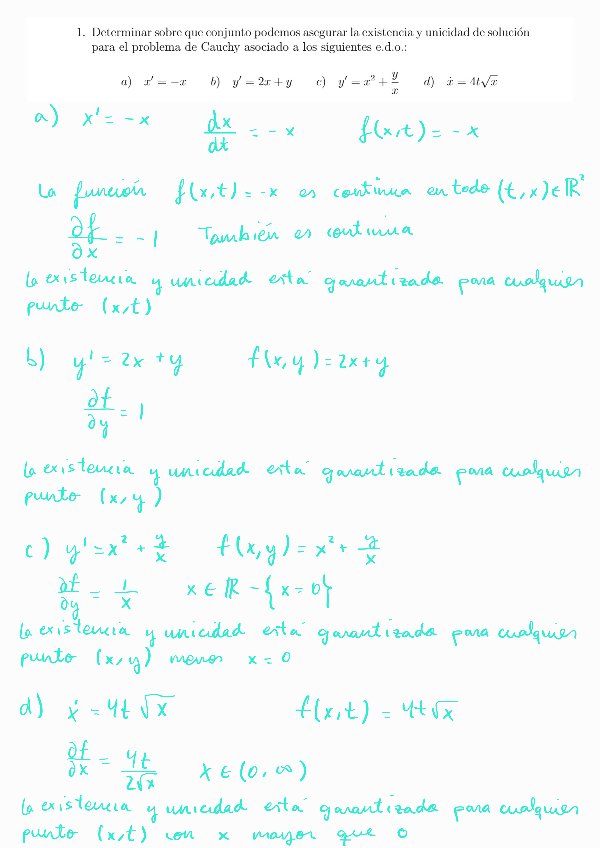 1. Determinar sobre que conjunto podemos asegurar la existencia y unicidad de solución
para el problema de Cauchy asociado a los siguientes e.d.o.:
a) x' = −x b) y' = 2x + y c) y' = x² + y/x d) ẋ = 4t√x
a) x' = −x dx/dt = −x f(x,t) = −x
La función f(x,t) = −x es continua en todo (t,x) ∈ ℝ²
∂f/∂x = −1 También es continua
La existencia y unicidad está garantizada para cualquier
punto (x,t)
b) y' = 2x + y f(x,y) = 2x + y
∂f/∂y = 1
La existencia y unicidad está garantizada para cualquier
punto (x,y)
c) y' = x² + y/x f(x,y) = x² + y/x
∂f/∂y = 1/x x ∈ ℝ − {x = 0}
La existencia y unicidad está garantizada para cualquier
punto (x,y) menos x = 0
d) ẋ = 4t√x f(x,t) = 4t√x
∂f/∂x = 4t/2√x x ∈ (0, ∞)
La existencia y unicidad está garantizada para cualquier
punto (x,t) con x mayor que 0